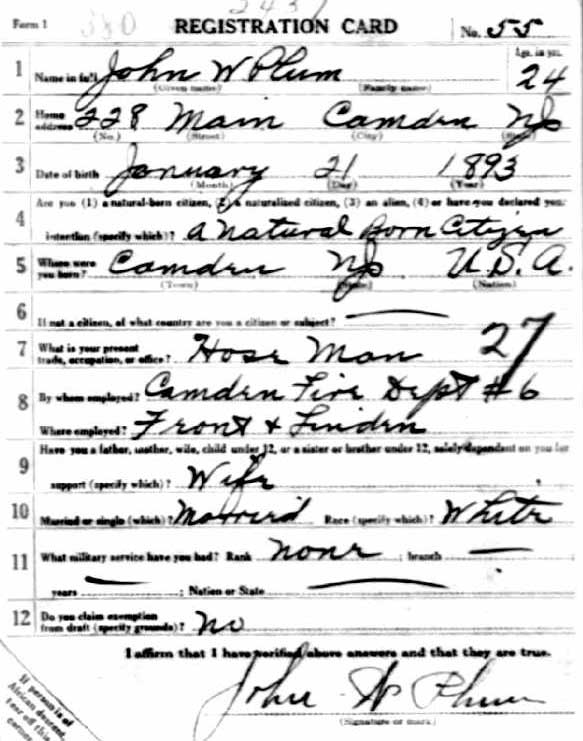 Form 1 REGISTRATION CARD No. 55
1 Name in full John W Plum Age, in yrs. 24
(Given name) (Family name)
2 Home address 228 Main Camden NJ
(No.) (Street) (City) (State)
3 Date of birth January 21 1893
(Month) (Day) (Year)
4 Are you (1) a natural-born citizen, (2) a naturalized citizen, (3) an alien, (4) or have you declared your
intention (specify which)? a Natural Born Citizen
5 Where were you born? Camden NJ U.S.A.
(Town) (State) (Nation)
6 If not a citizen, of what country are you a citizen or subject?
7 What is your present trade, occupation, or office? Hose Man 27
8 By whom employed? Camden Fire Dept #6
Where employed? Front & Linden
9 Have you a father, mother, wife, child under 12, or a sister or brother under 12, solely dependent on you for
support (specify which)? Wife
10 Married or single (which)? Married Race (specify which)? White
11 What military service have you had? Rank none ; branch
years ; Nation or State
12 Do you claim exemption from draft (specify grounds)? No
I affirm that I have verified above answers and that they are true.
John W Plum
(Signature or mark)
If person is of
African descent,
tear off this
corner